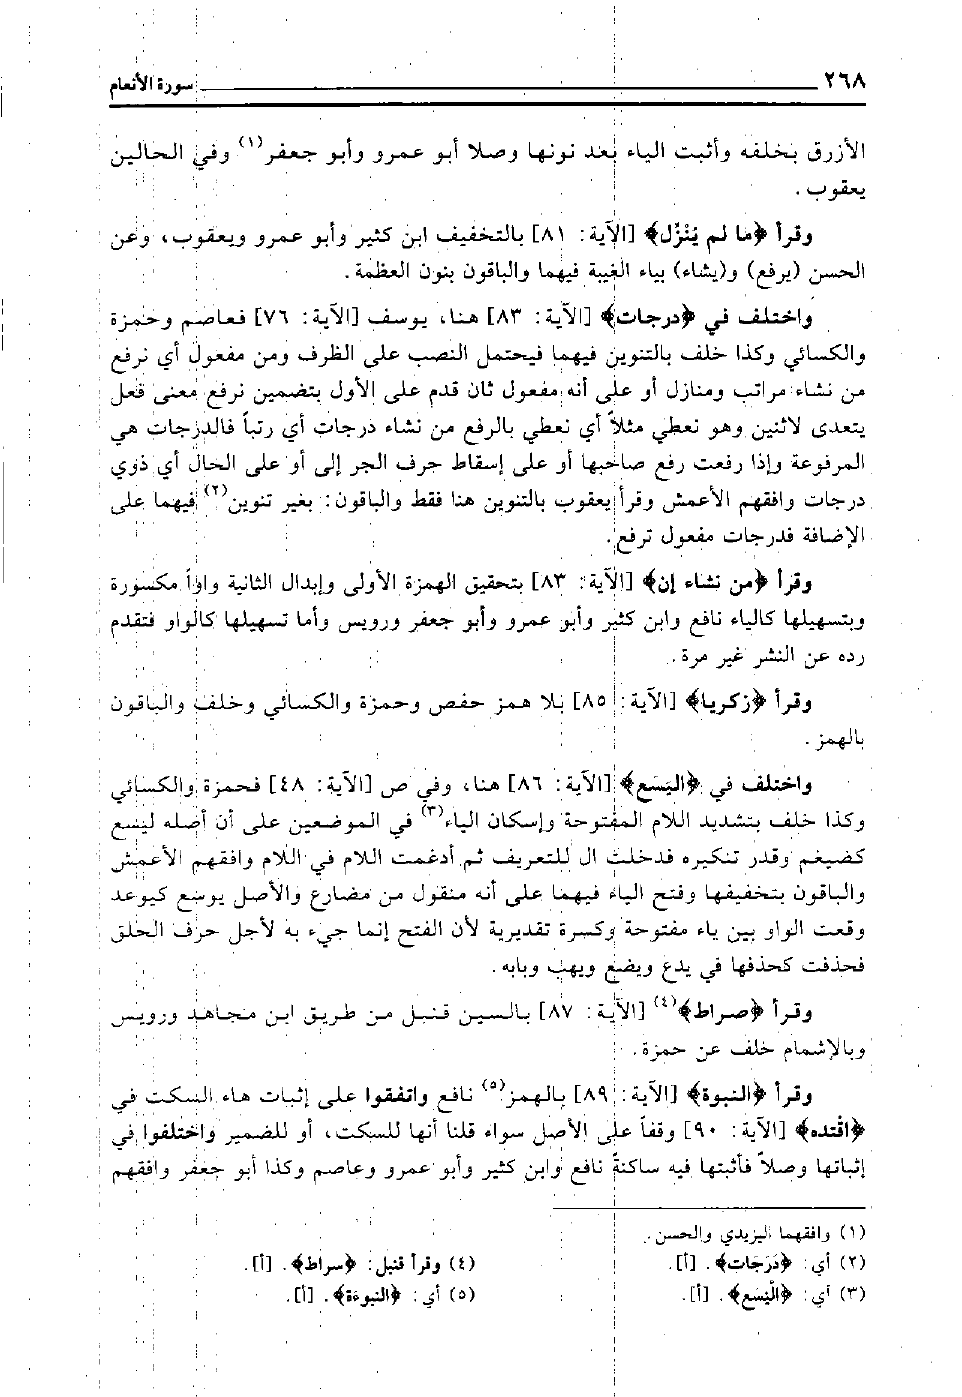 ٢٦٨ سورة الأنعام
الأزرق بخلفه وأثبت الياء بعد نونها وصلا أبو عمرو وأبو جعفر(١) وفي الحالين
يعقوب.
وقرأ ﴿ما لم يُنَزِّل﴾ [الآية: ٨١] بالتخفيف ابن كثير وأبو عمرو ويعقوب، وعن
الحسن (يرفع) و(يشاء) بياء الغيبة فيهما والباقون بنون العظمة.
واختلف في ﴿درجات﴾ [الآية: ٨٣] هنا، يوسف [الآية: ٧٦] فعاصم وحمزة
والكسائي وكذا خلف بالتنوين فيهما فيحتمل النصب على الظرف ومن مفعول أي نرفع
من نشاء مراتب ومنازل أو على أنه مفعول ثان قدم على الأول بتضمين نرفع معنى فعل
يتعدى لاثنين وهو نعطي مثلاً أي نعطي بالرفع من نشاء درجات أي رتباً فالدرجات هي
المرفوعة وإذا رفعت رفع صاحبها أو على إسقاط حرف الجر إلى أو على الحال أي ذوي
درجات وافقهم الأعمش وقرأ يعقوب بالتنوين هنا فقط والباقون: بغير تنوين(٢) فيهما على
الإضافة فدرجات مفعول ترفع.
وقرأ ﴿من نشاء إن﴾ [الآية: ٨٣] بتحقيق الهمزة الأولى وإبدال الثانية واواً مكسورة
وبتسهيلها كالياء نافع وابن كثير وأبو عمرو وأبو جعفر ورويس وأما تسهيلها كالواو فتقدم
رده عن النشر غير مرة.
وقرأ ﴿زكريا﴾ [الآية: ٨٥] بلا همز حفص وحمزة والكسائي وخلف والباقون
بالهمز.
واختلف في ﴿اليَسَع﴾ [الآية: ٨٦] هنا، وفي ص [الآية: ٤٨] فحمزة والكسائي
وكذا خلف بتشديد اللام المفتوحة وإسكان الياء(٣) في الموضعين على أن أصله ليسع
كضيغم وقدر تنكيره فدخلت ال للتعريف ثم أدغمت اللام في اللام وافقهم الأعمش
والباقون بتخفيفها وفتح الياء فيهما على أنه منقول من مضارع والأصل يوسع كيوعد
وقعت الواو بين ياء مفتوحة وكسرة تقديرية لأن الفتح إنما جيء به لأجل حرف الحلق
فحذفت كحذفها في يدع ويضع ويهب وبابه.
وقرأ ﴿صراط﴾(٤) [الآية: ٨٧] بالسين قنبل من طريق ابن مجاهد ورويس
وبالإشمام خلف عن حمزة.
وقرأ ﴿النبوة﴾ [الآية: ٨٩] بالهمز(٥) نافع واتفقوا على إثبات هاء السكت في
﴿اقْتده﴾ [الآية: ٩٠] وقفاً على الأصل سواء قلنا أنها للسكت، أو للضمير واختلفوا في
إثباتها وصلاً فأثبتها فيه ساكنةً نافع وابن كثير وأبو عمرو وعاصم وكذا أبو جعفر وافقهم
(١) وافقهما اليزيدي والحسن.
(٢) أي: ﴿دَرَجَات﴾. [أ].
(٣) أي: ﴿الْيَسَع﴾. [أ].
(٤) وقرأ قنبل: ﴿سراط﴾. [أ].
(٥) أي: ﴿النبوءَة﴾. [أ].